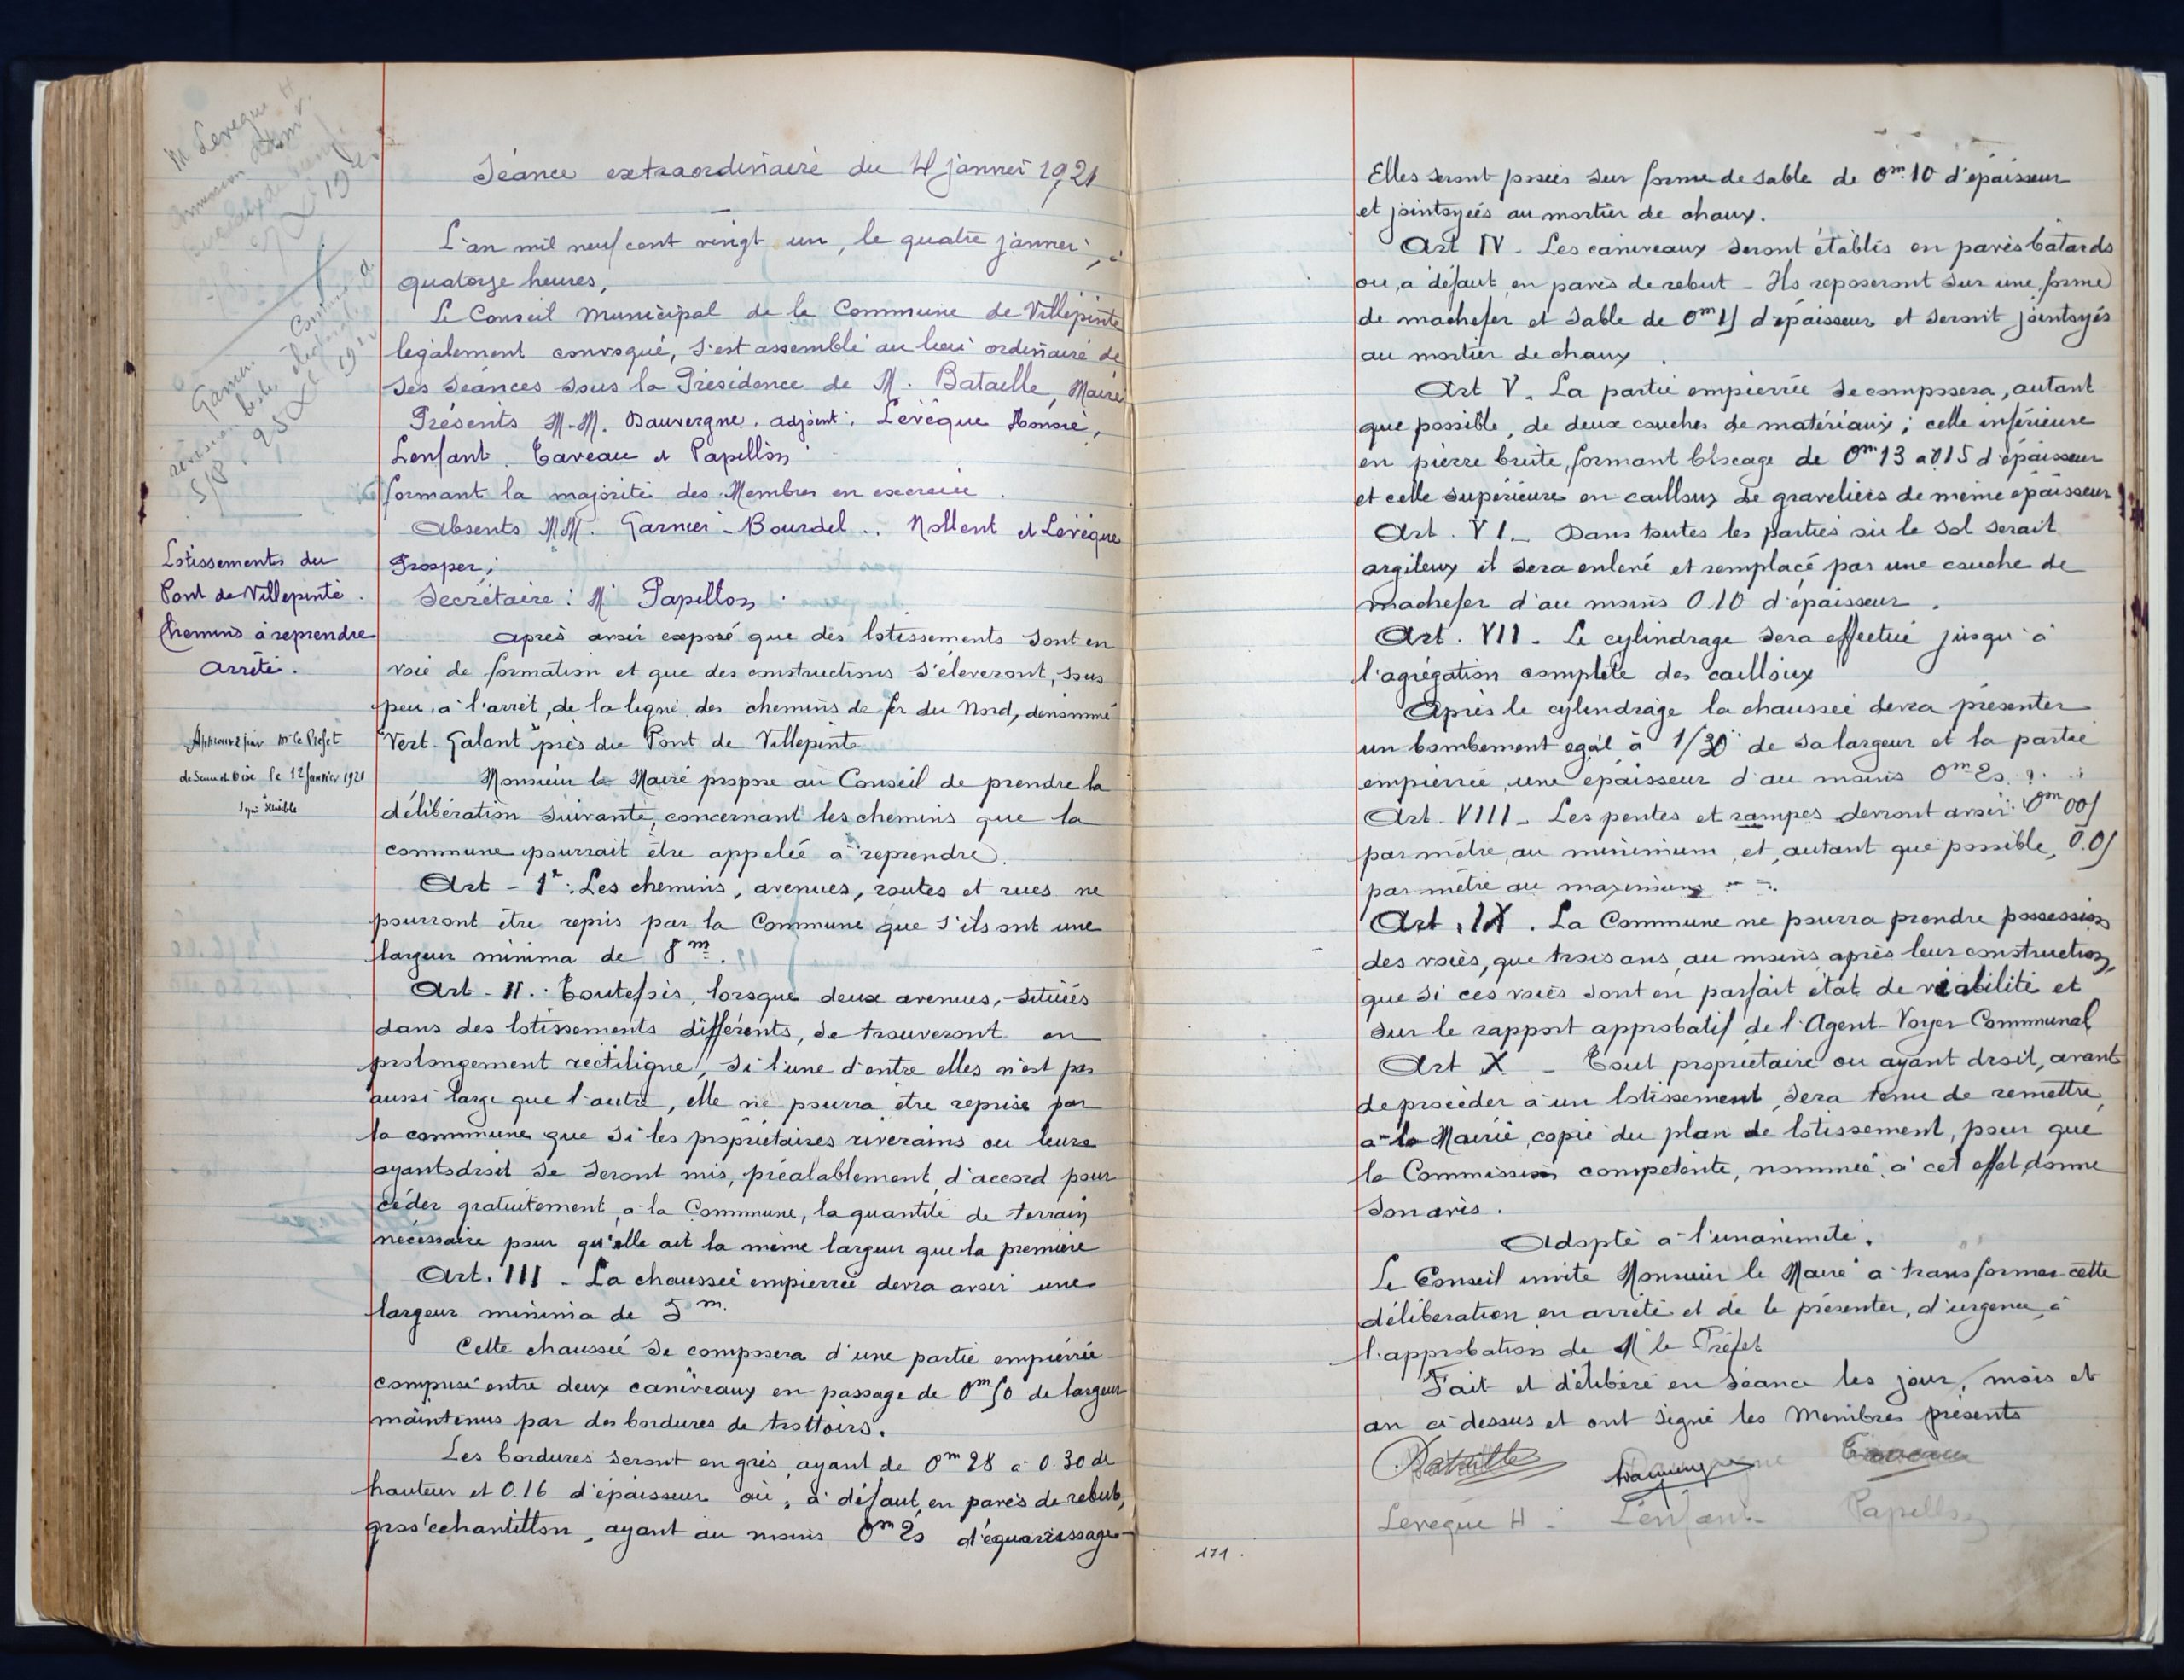 Séance extraordinaire du 4 janvier 1921
L'an mil neuf cent vingt un, le quatre janvier, à
quatorze heures,
Le Conseil Municipal de la Commune de Villepinte
légalement convoqué, s'est assemblé au lieu ordinaire de
ses séances sous la Présidence de M. Bataille, Maire
Présents M.M. Dauvergne, adjoint; Levêque Honoré,
Lenfant, Taveau et Papillon
formant la majorité des Membres en exercice.
Absents MM. Garnier - Bourdel .. Nollent et Levêque
Prosper;
Secrétaire: Mr Papillon.
Lotissements du
Pont de Villepinte.
Chemins à reprendre
arrêté.
Approuvé par Mr le Préfet
de Seine et Oise le 12 janvier 1921
après avoir exposé que des lotissements sont en
voie de formation et que des constructions s'éleveront, sous
peu, à l'arrêt, de la ligne des chemins de fer du Nord, denommé
"Vert-Galant" près du Pont de Villepinte
Monsieur le Maire propose au Conseil de prendre la
délibération suivante, concernant les chemins que la
commune pourrait être appelée à reprendre.
Art - 1er: Les chemins, avenues, routes et rues ne
pourront être repris par la Commune que s'ils ont une
largeur minima de 8m.
Art - II.: Toutefois, lorsque deux avenues, situées
dans des lotissements différents, se trouveront en
prolongement rectiligne, si l'une d'entre elles n'est pas
aussi large que l'autre, elle ne pourra être reprise par
la commune que si les propriétaires riverains ou leurs
ayants droit se seront mis, préalablement, d'accord pour
céder gratuitement, à la Commune, la quantité de terrain
nécessaire pour qu'elle ait la même largeur que la première
Art. III - La chaussée empierrée devra avoir une
largeur minima de 5m.
Cette chaussée se composera d'une partie empierrée
comprise entre deux caniveaux en passage de 0m50 de largeur
maintenus par des bordures de trottoirs.
Les bordures seront en grès, ayant de 0m28 à 0.30 de
hauteur et 0.16 d'épaisseur ou, à défaut, en pavés de rebut,
gros échantillon, ayant au moins 0m20 d'équarrissage
Elles seront posées sur forme de sable de 0m.10 d'épaisseur
et jointoyées au mortier de chaux.
Art IV - Les caniveaux seront établis en pavés batards
ou, à défaut, en pavés de rebut - Ils reposeront sur une forme
de machefer et sable de 0m15 d'épaisseur et seront jointoyés
au mortier de chaux.
Art V. La partie empierrée se composera, autant
que possible, de deux couches de matériaux; celle inférieure
en pierre brute, formant blocage de 0m13 à 015 d'épaisseur
et celle supérieure en cailloux de gravelières de même épaisseur
Art. VI - Dans toutes les parties où le sol serait
argileux il sera enlevé et remplacé par une couche de
machefer d'au moins 0.10 d'épaisseur.
Art. VII - Le cylindrage sera effectué jusqu'à
l'agrégation complète des cailloux
Après le cylindrage la chaussée devra présenter
un bombement égal à 1/30e de sa largeur et la partie
empierrée une épaisseur d'au moins 0m20.
Art. VIII - Les pentes et rampes devront avoir: 0m005
par mètre, au minimum, et, autant que possible, 0.05
par mètre au maximum
Art. IX. La Commune ne pourra prendre possession
des voies, que trois ans, au moins, après leur construction,
que si ces voies sont en parfait état de viabilité et
sur le rapport approbatif de l'Agent-Voyer Communal
Art X - Tout propriétaire ou ayant droit, avant
de procéder à un lotissement, sera tenu de remettre,
à la Mairie, copie du plan de lotissement, pour que
la Commission compétente, nommée à cet effet, donne
son avis.
Adopté à l'unanimité.
Le Conseil invite Monsieur le Maire à transformer cette
délibération en arrêté et de le présenter, d'urgence, à
l'approbation de Mr le Préfet
Fait et délibéré en Séance les jour, mois et
an ci dessus et ont signé les Membres présents
Bataille Dauvergne Taveau
Levêque H. Lenfant Papillon
171.